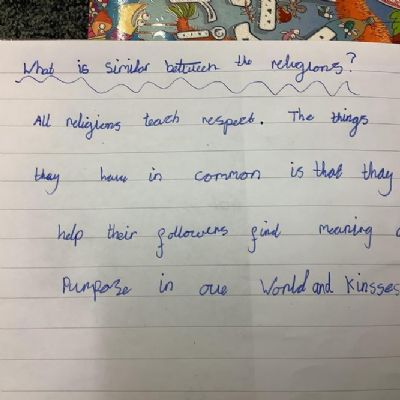 What is similar between the religions?
All religions teach respect. The things
they have in common is that thay
help their followers find meaning
Purpose in our World and Kinsses